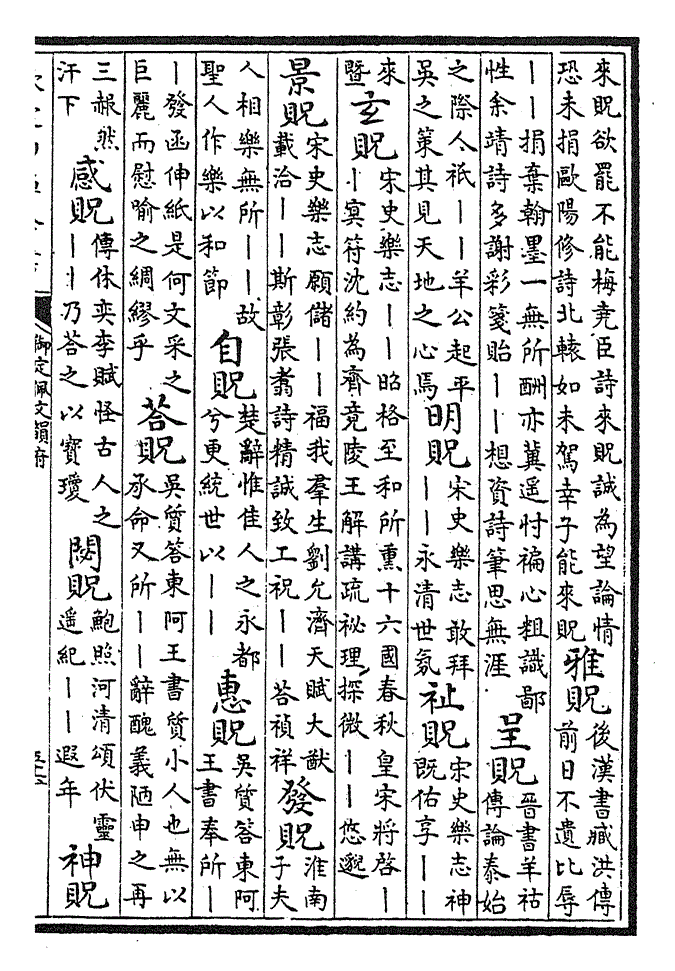 來貺欲罷不能梅堯臣詩來貺誠為望論情
恐未捐歐陽修詩北轅如未駕幸子能來貺
雅貺
後漢書臧洪傳
前日不遺比辱
丨丨捐棄翰墨一無所酬亦冀遥忖褊心粗識鄙
性余靖詩多謝彩箋貽丨丨想資詩筆思無涯
呈貺
晉書羊祜
傳論泰始
之際人祇丨丨羊公起平
吳之策其見天地之心焉
明貺
宋史樂志敢拜
丨丨永清世氛
祉貺
宋史樂志神
既佑享丨丨
來
暨
玄貺
宋史樂志丨丨昭格至和所熏十六國春秋皇宋將啓丨
丨冥符沈約為齊竟陵王解講疏祕理探微丨丨悠邈
景貺
宋史樂志願儲丨丨福我羣生劉允濟天賦大猷
載洽丨丨斯彰張翥詩精誠致工祝丨丨荅禎祥
發貺
淮南
子夫
人相樂無所丨丨故
聖人作樂以和節
自貺
楚辭惟佳人之永都
兮更統世以丨丨
惠貺
吳質荅東阿
王書奉所丨
丨發函伸紙是何文采之
巨麗而慰喻之綢繆乎
荅貺
吳質荅東阿王書質小人也無以
承命又所丨丨辭醜義陋申之再
三赧然
汗下
感貺
傅休奕李賦怪古人之
丨丨乃荅之以寳瓊
閟貺
鮑照河清頌伏靈
遥紀丨丨遐年
神貺
御定佩文韻府